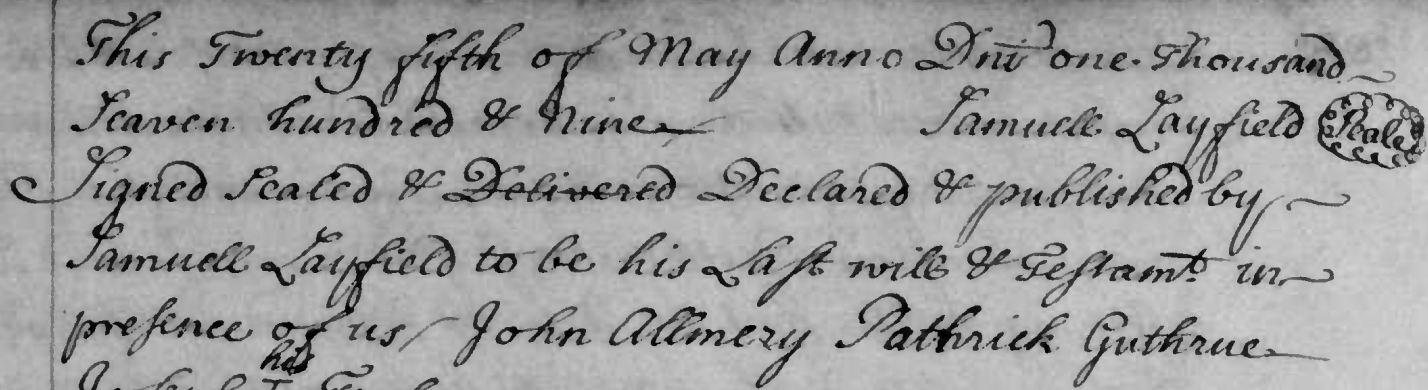 This Twenty fifth of May Anno Dni one Thousand
Seaven hundred & Nine Samuell Layfield Seale
Signed Sealed & Delivered Declared & published by
Samuell Layfield to be his Last will & Testamt. in
presence of us John Allmery Pathrick Guthrue
his